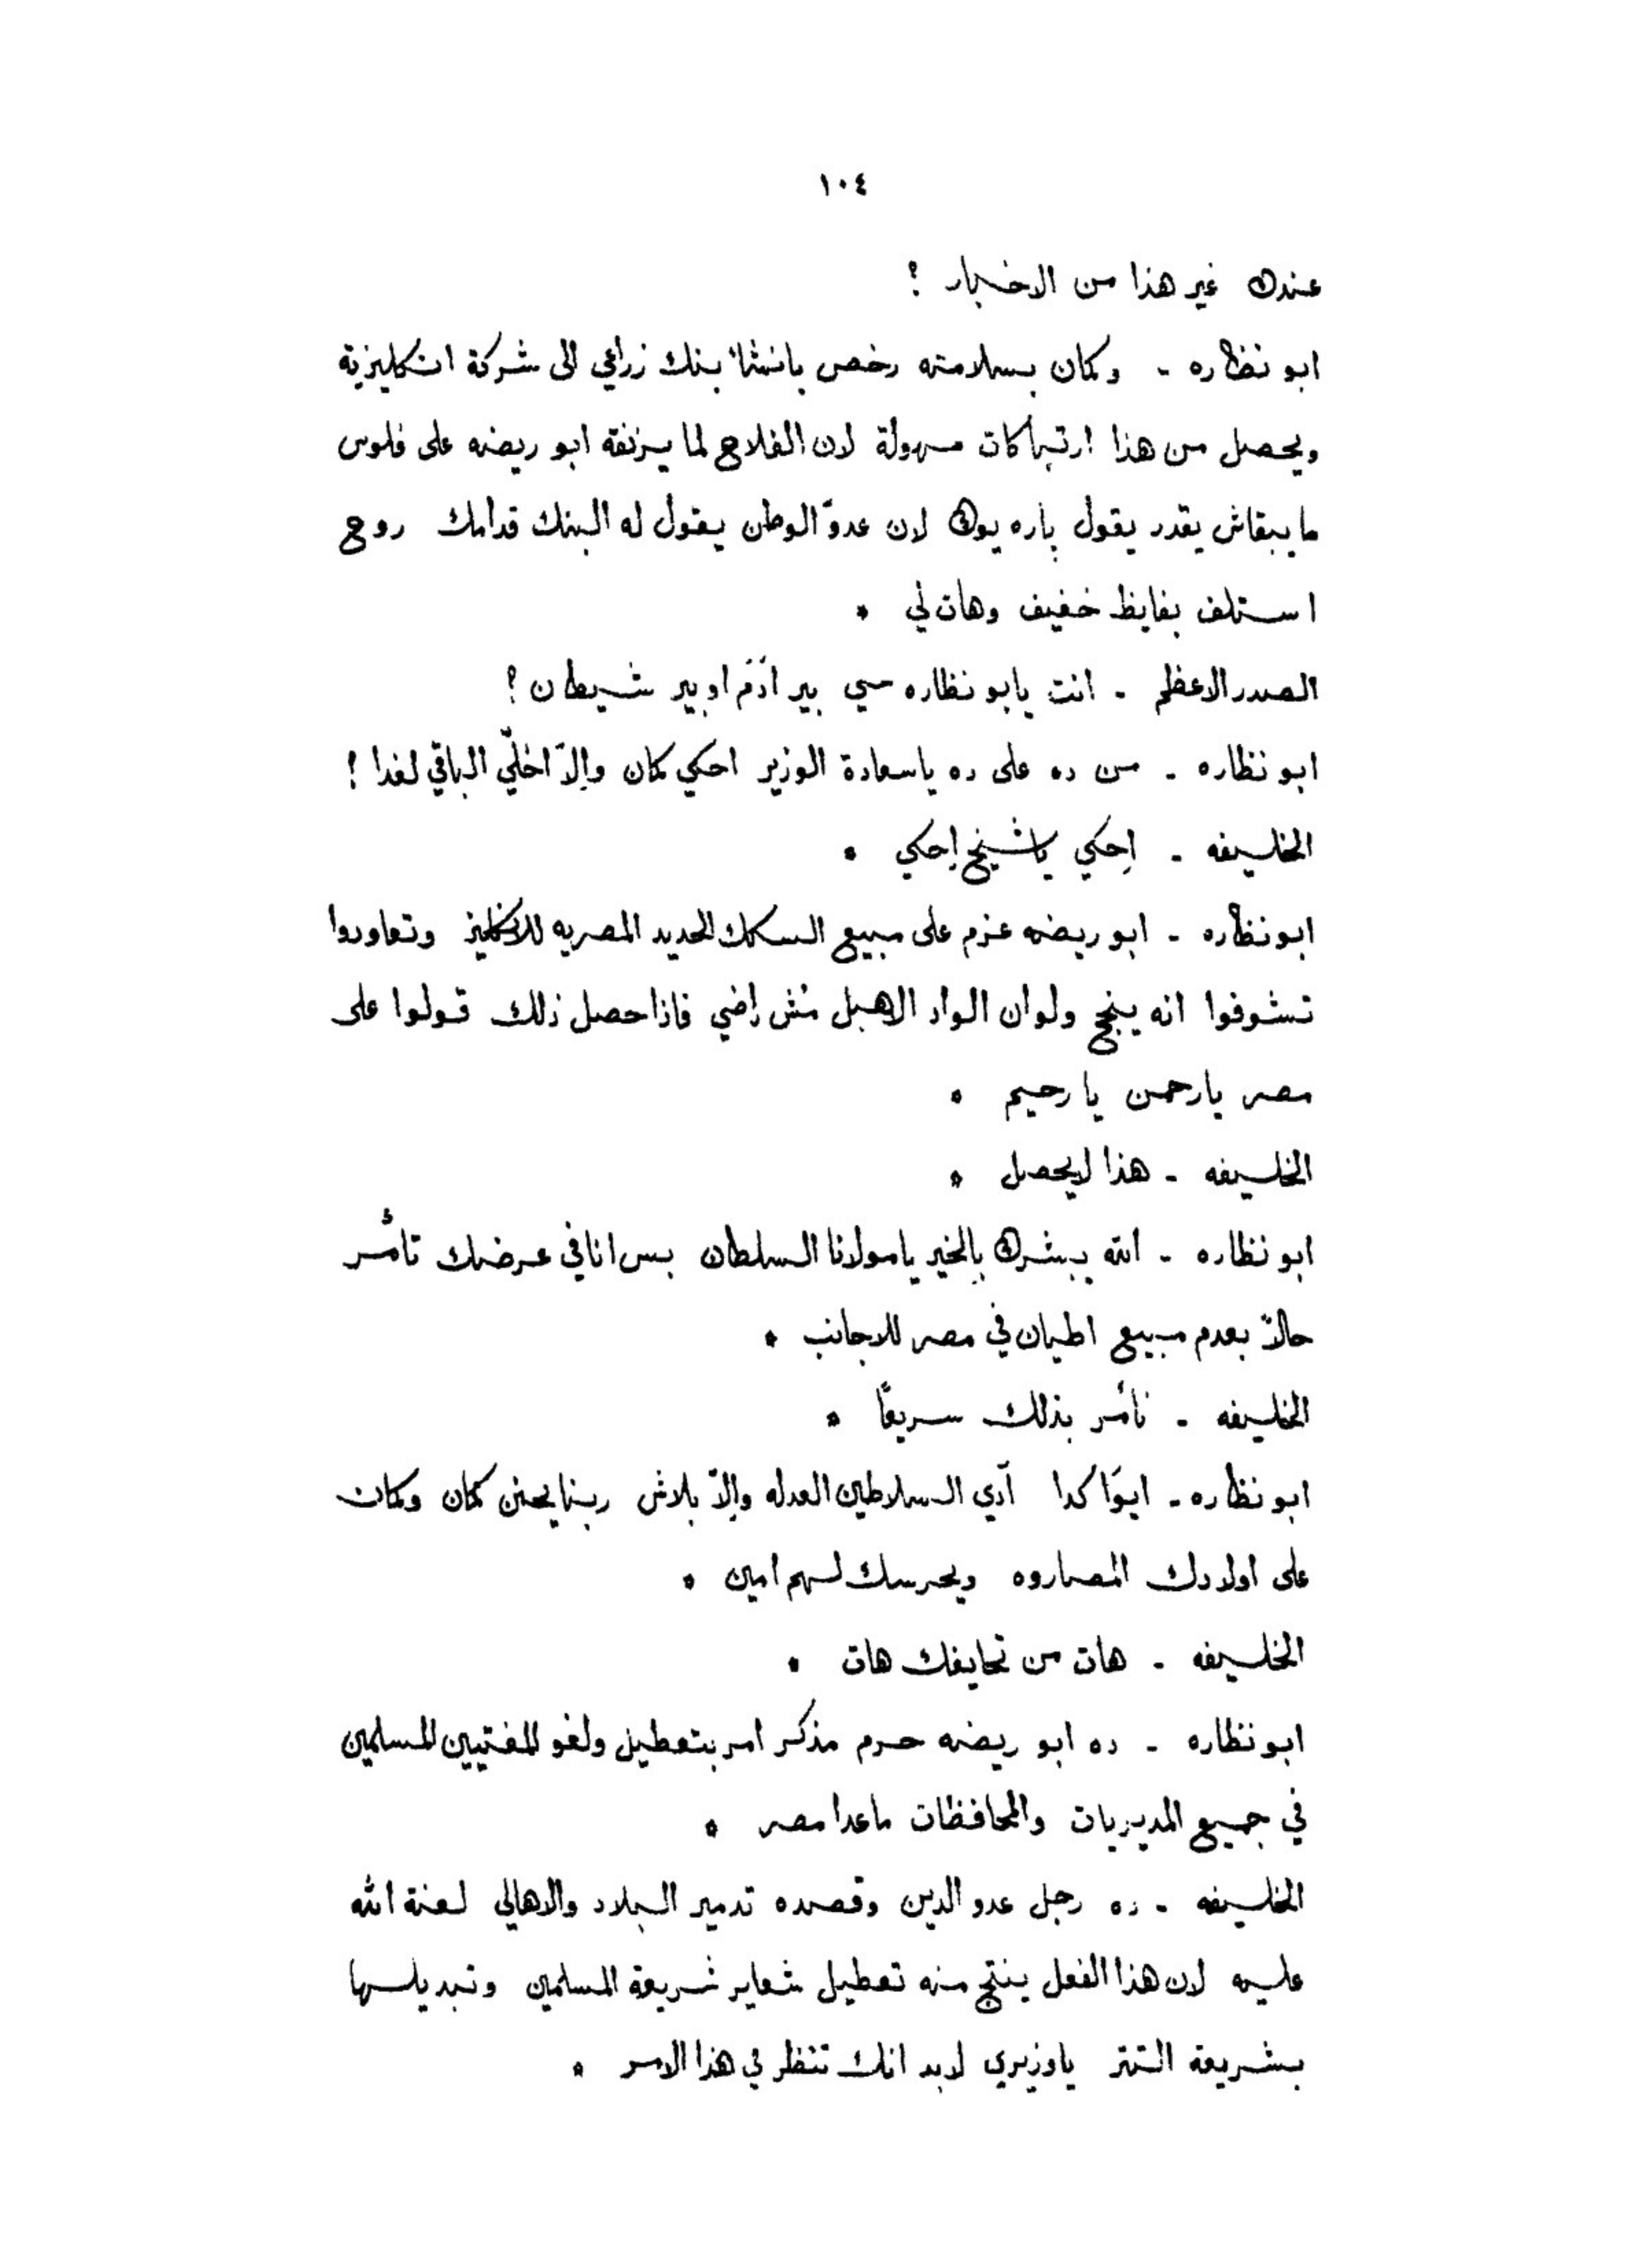 ١٠٤
عندك غير هذا من الاخبار ؟
ابو نظاره - وكمان بسلامته رخص بانشاء بنك زراعي الى شركة انكليزية
ويحصل من هذا ارتباكات مهولة لان الفلاح لما يزنقه ابو ريضه على فلوس
ما يبقاش يقدر يقول باره يوك لان عدوّ الوطن يقول له البنك قدامك روح
استلف بفايظ خفيف وهات لي *
الصدر الاعظم - انت يابو نظاره سي بير ادَم او بير شيطان ؟
ابو نظاره - من ده على ده ياسعادة الوزير احكي كمان وإلاّ اخلّي الباقي لغدا !
الخليفه - إحكي ياشيخ إحكي *
ابو نظاره - ابو ريضه عزم على مبيع السكك الحديد المصريه للانكليز وتعاودوا
تشوفوا انه ينجح ولو ان الواد الاهبل مُش راضي فاذا حصل ذلك قولوا على
مصر يارحمن يا رحيم *
الخليفه - هذا لا يحصل *
ابو نظاره - الله يبشرك بالخير يا مولانا السلطان بس انا في عرضك تأمُر
حالاً بعدم مبيع اطيان في مصر للاجانب *
الخليفه - نأمُر بذلك سريعًا *
ابو نظاره - ايوَا كدا آدي السلاطين العدله وإلاّ بلاش ربنا يحنن كمان وكمان
على اولادك المصاروه ويحرسك لهم امين *
الخليفه - هات من تحايفك هات *
ابو نظاره - ده ابو ريضه حرم مذكر امر بتعطيل ولغو المفتيين المسلمين
في جميع المديريات والمحافظات ماعدا مصر *
الخليفه - ده رجل عدو الدين وقصده تدمير البلاد والاهالي لعنة الله
عليه لان هذا الفعل ينتج منه تعطيل شعاير شريعة المسلمين وتبديلها
بشريعة التتر ياوزيري لابد انك تنظر في هذا الامر *